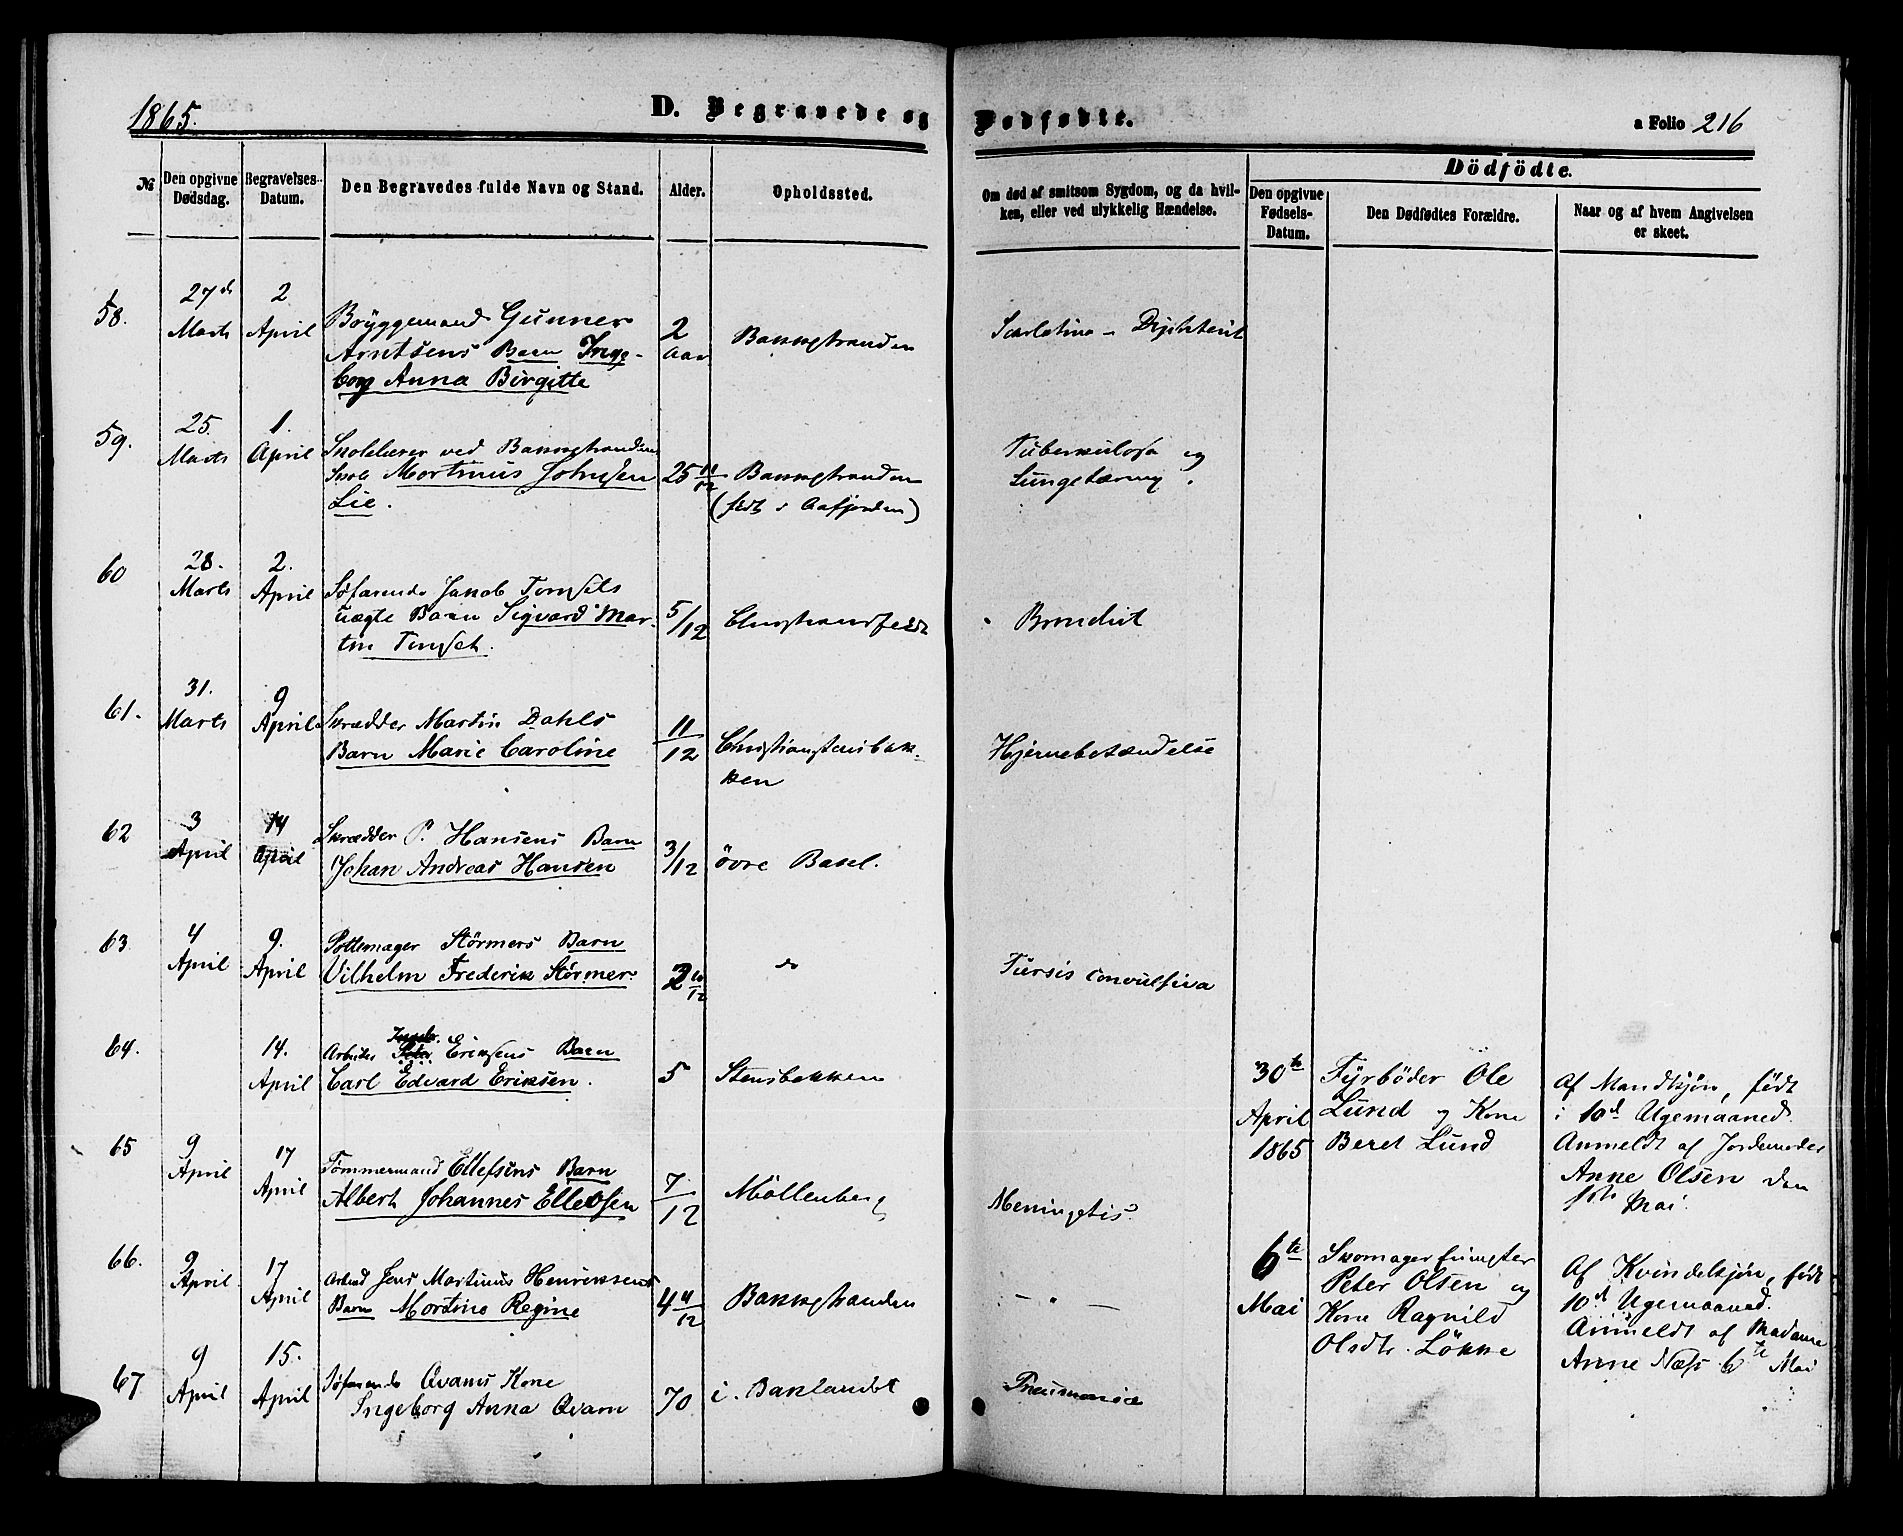 1865.
D. Begravede og Dødfødte.
a Folio 216
№
Den opgivne Dødsdag.
Begravelses-Datum.
Den Begravedes fulde Navn og Stand.
Alder.
Opholdssted.
Om død af smitsom Sygdom, og da hvil-
ken, eller ved ulykkelig Hændelse.
Dödfödte.
Den opgivne Fødsels-Datum.
Den Dødfødtes Forældre.
Naar og af hvem Angivelsen
er skeet.
58. 27de Marts 2 April
Bryggemand Gunner
Arntsens Barn Inge-
borg Anna Birgitte
2 Aar
Bakkestranden
Scarlatina - Diphterit
59. 25. Marts 1. April
Skolelærer ved Bakkestrandens
Skole Martinus Johnsen
Lie.
25 11/12
Bakkestranden
(født i Aafjorden)
Tuberkulosa og
Lungetæring.
60 28. Marts 2. April
Søfarende Jakob Tomsets
uægte Barn Sigvard Mar-
tin Tomset.
5/12
Christiansfeldt
Bronchit
61. 31. Marts 9 April
Skrædder Martin Dahls
Barn Marie Caroline
11/12
Christianstensbak-
ken
Hjernebetændelse
62 3 April 14 April
Skrædder P. Hansens Barn
Johan Andreas Hansen
3/12
övre Bakl.
63 4 April 9. April
Pottemager Störmers Barn
Vilhelm Frederik Störmer.
2 10/12
do
Tussis convulsiva
64. 14. April
Arbeider Eriksens Barn
Carl Edvard Eriksen.
5
Stensbakken
65 9 April 17 April
Tömmermand Ellefsens Barn
Albert Johannes Ellefsen
7/12
Möllenberg
Meningitis.
66. 9 April 17 April
Arbmd Jens Martinus Henriksens
Barn Martine Regine
4 11/12
Bakkestranden
— " —
67 9 April 15. April
Søfarende Qvams Kone
Ingeborg Anna Qvam
70
i. Baklandet
Pneumonia
30te April 1865
Fyrböder Ole
Lund og Kone
Beret Lund
Af Mandkjön, födt
i 10de Ugemaaned.
Anmeldt af Jordemoder
Anne Olsen den
1ste Mai.
6te Mai
Skomagersvend
Peter Olsen og
Kone Ragnild
Olsdtr. Lökke
Af Kvindekjön, födt
10de Ugemaaned.
Anmeldt af Madame
Anne Næss 6te Mai